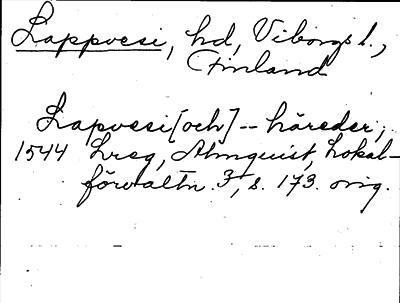 Lappvesi, hd, Viborgs l.,
Finland
Lapvesi [och] -- häreder,
1544 Lreg, Almquist, Lokal-
förvaltn. 3, s. 173. orig.